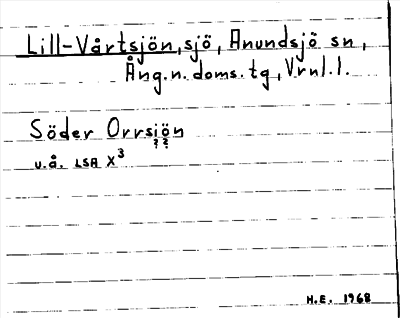 Lill-Vårtsjön, sjö, Anundsjö sn,
Ång. n. doms. tg, Vrnl. l.
Söder Orrsjön
? ?
u.å. LSA X3
H.E. 1968